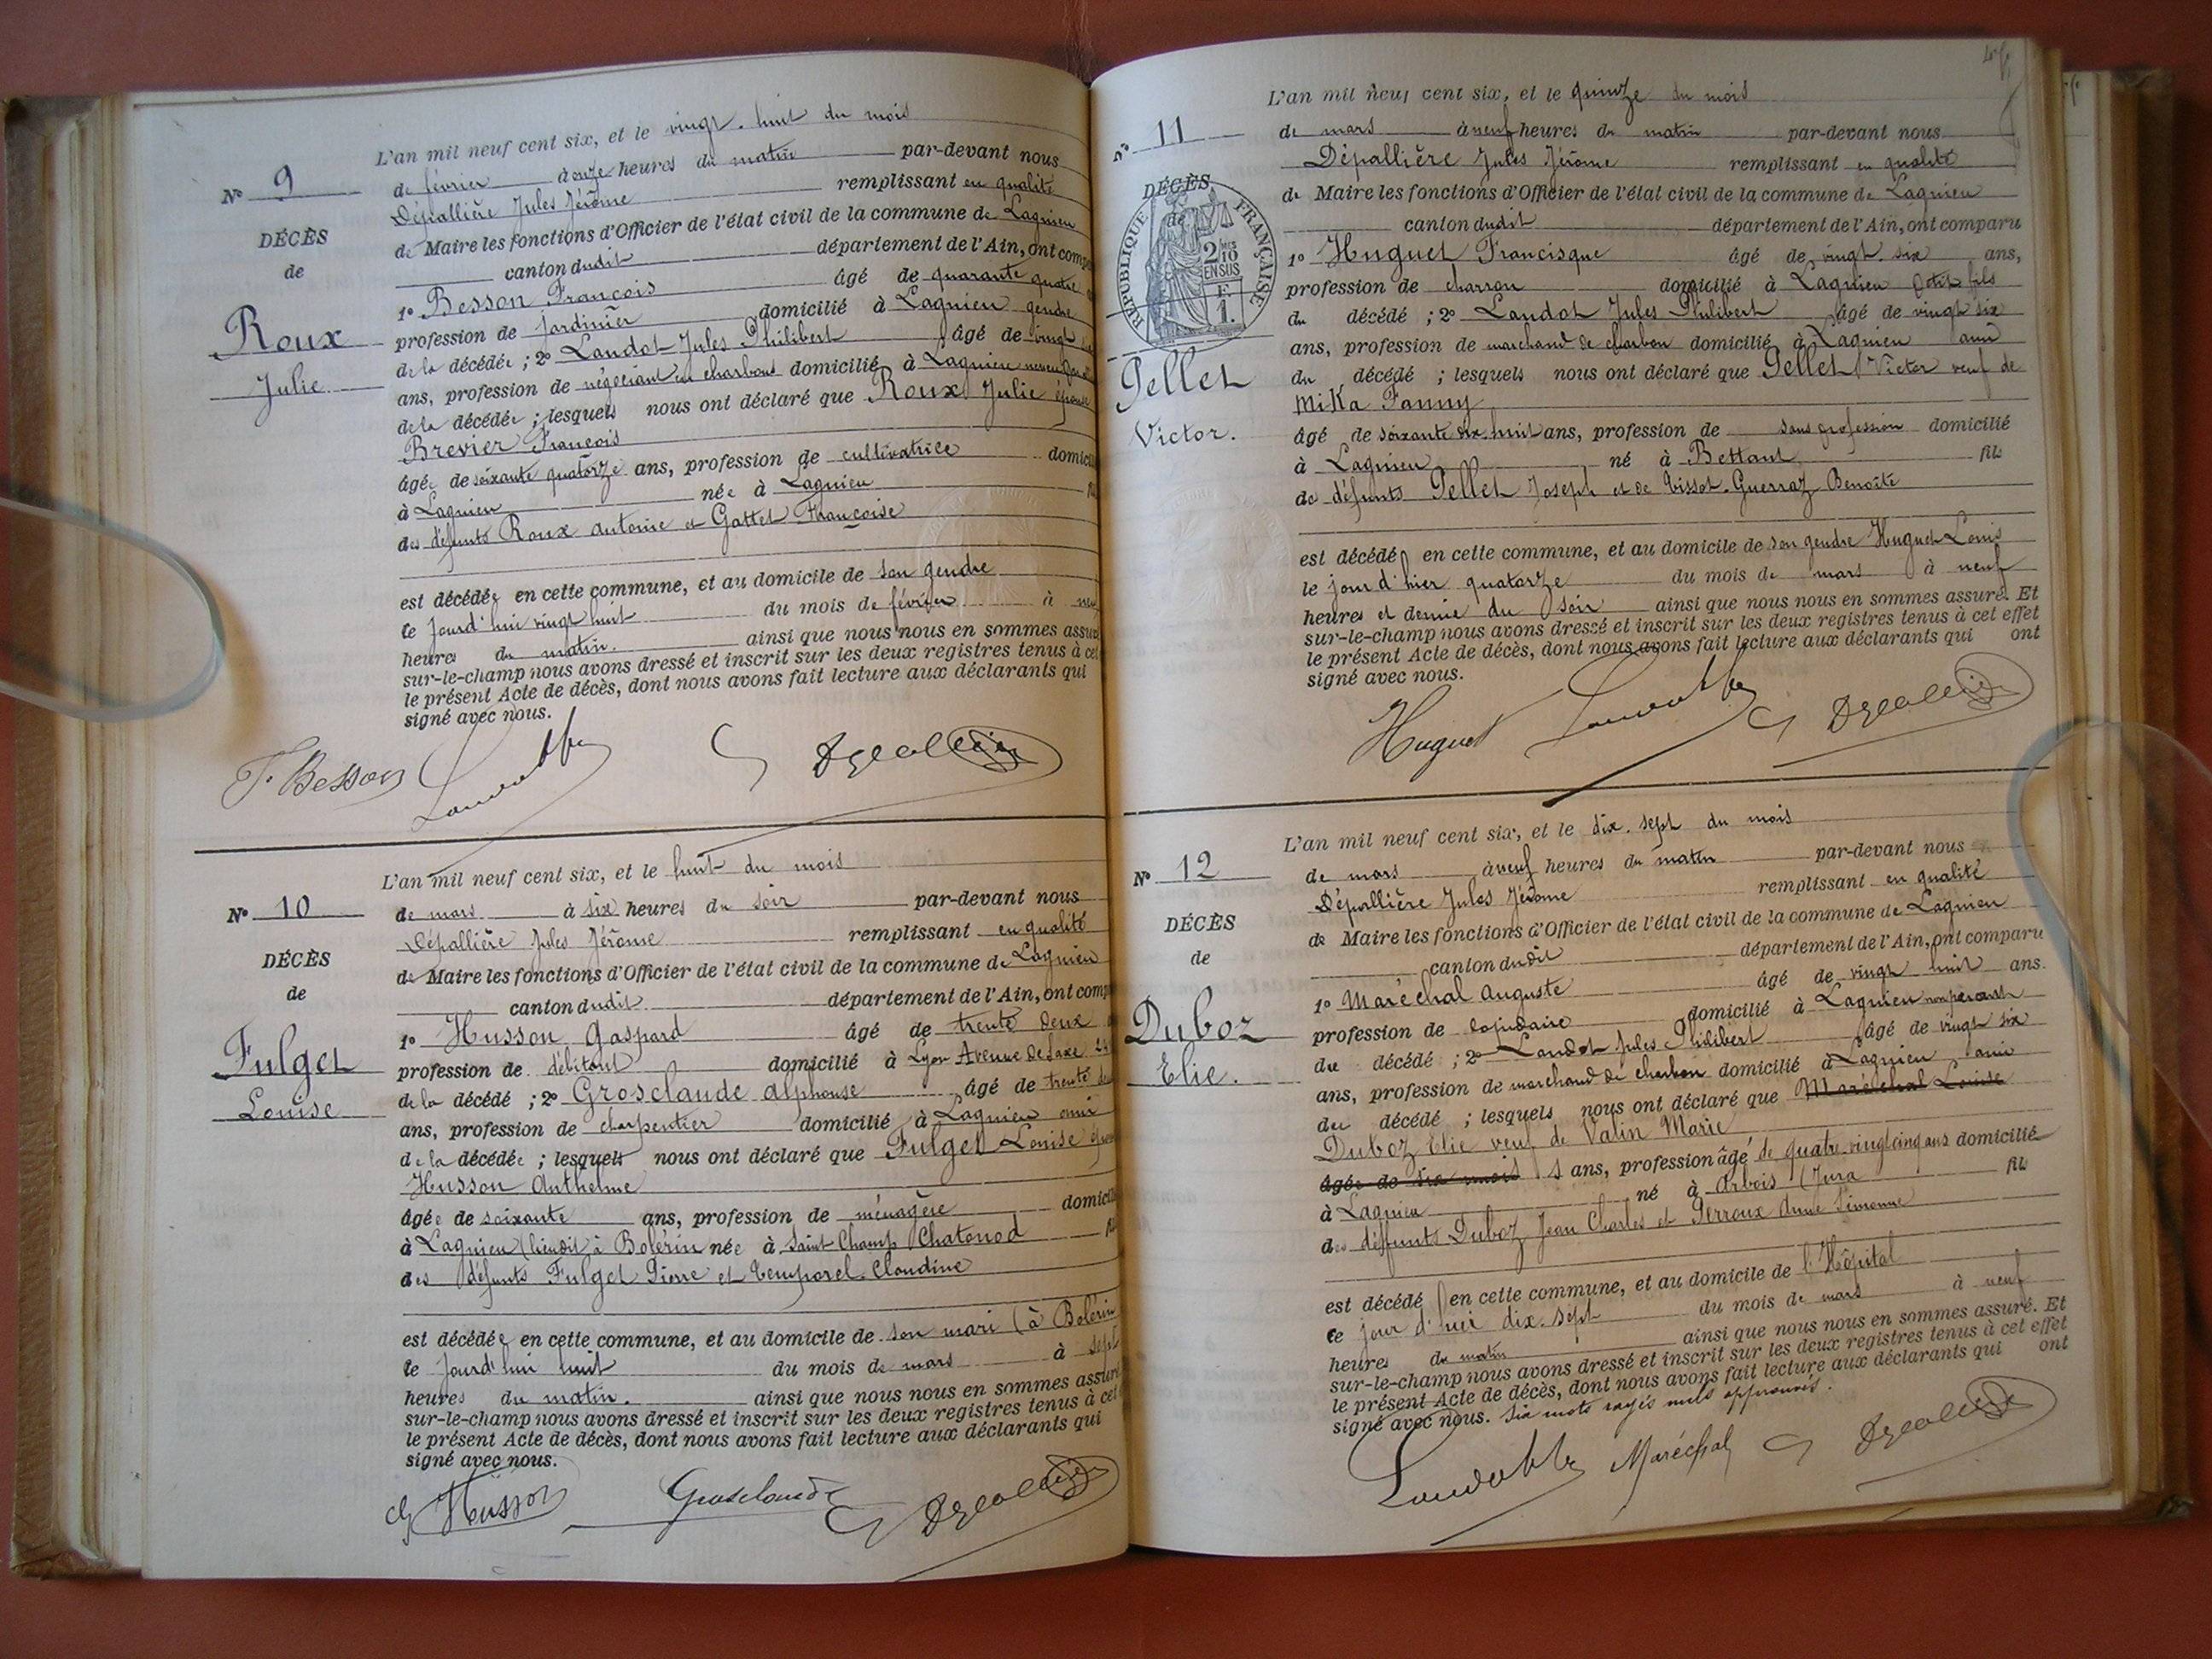 L'an mil neuf cent six, et le vingt-huit du mois
de février à onze heures du matin par-devant nous
Dépallière Jules Jérôme remplissant en qualité
de Maire les fonctions d'Officier de l'état civil de la commune de Lagnieu
canton dudit département de l'Ain, ont comp
N° 9
DÉCÈS
de
Roux
Julie
1° Besson François âgé de quarante quatre
profession de jardinier domicilié à Lagnieu gendre
de la décédée ; 2° Landot Jules Philibert âgé de vingt
ans, profession de négociant en charbons domicilié à Lagnieu neveu
de la décédée ; lesquels nous ont déclaré que Roux Julie épouse
Brevier François
âgée de soixante quatorze ans, profession de cultivatrice domici
à Lagnieu née à Lagnieu
des défunts Roux Antoine et Gattet Françoise
est décédée en cette commune, et au domicile de son gendre
le jourd'hui vingt huit du mois de février à
heures du matin. ainsi que nous nous en sommes assur
sur-le-champ nous avons dressé et inscrit sur les deux registres tenus à cet
le présent Acte de décès, dont nous avons fait lecture aux déclarants qui
signé avec nous.
F. Besson
L'an mil neuf cent six, et le huit du mois
de mars à six heures du soir par-devant nous
Dépallière Jules Jérôme remplissant en qualité
de Maire les fonctions d'Officier de l'état civil de la commune de Lagnieu
canton dudit département de l'Ain, ont comp
N° 10
DÉCÈS
de
Fulget
Louise
1° Husson Gaspard âgé de trente deux
profession de débitant domicilié à Lyon Avenue de Saxe
de la décédé ; 2° Grosclaude Alphonse âgé de trente
ans, profession de charpentier domicilié à Lagnieu ami
de la décédée ; lesquels nous ont déclaré que Fulget Louise
Husson Anthelme
âgée de soixante ans, profession de ménagère domici
à Lagnieu (lieudit à Bolérin née à Saint Champ Chatonod
des défunts Fulget Pierre et Temporel Claudine
est décédée en cette commune, et au domicile de son mari (à Bolérin
le jourd'hui huit du mois de mars à sept
heures du matin. ainsi que nous nous en sommes assuré
sur-le-champ nous avons dressé et inscrit sur les deux registres tenus à cet
le présent Acte de décès, dont nous avons fait lecture aux déclarants qui
signé avec nous.
Husson Grosclaude
L'an mil neuf cent six, et le quinze du mois
de mars à neuf heures du matin par-devant nous
Dépallière Jules Jérôme remplissant en qualité
de Maire les fonctions d'Officier de l'état civil de la commune de Lagnieu
canton dudit département de l'Ain, ont comparu
N° 11
DÉCÈS
de
RÉPUBLIQUE FRANÇAISE
2/10
EN SUS
F.
1.
Pellet
Victor.
1° Huguet Francisque âgé de vingt-six ans,
profession de charron domicilié à Lagnieu petit fils
du décédé ; 2° Landot Jules Philibert âgé de vingt six
ans, profession de marchand de charbon domicilié à Lagnieu ami
du décédé ; lesquels nous ont déclaré que Pellet Victor veuf de
Mika Fanny
âgé de soixante dix-huit ans, profession de sans profession domicilié
à Lagnieu né à Bettant fils
de défunts Pellet Joseph et de Tissot-Guerraz Benoîte
est décédé en cette commune, et au domicile de son gendre Huguet Louis
le jour d'hier quatorze du mois de mars à neuf
heures et demie du soir ainsi que nous nous en sommes assuré. Et
sur-le-champ nous avons dressé et inscrit sur les deux registres tenus à cet effet
le présent Acte de décès, dont nous avons fait lecture aux déclarants qui ont
signé avec nous.
Huguet
L'an mil neuf cent six, et le dix-sept du mois
de mars à neuf heures du matin par-devant nous
Dépallière Jules Jérôme remplissant en qualité
de Maire les fonctions d'Officier de l'état civil de la commune de Lagnieu
canton dudit département de l'Ain, ont comparu
N° 12
DÉCÈS
de
Duboz
Elie.
1° Maréchal Auguste âgé de vingt huit ans.
profession de domicilié à Lagnieu non parent
du décédé ; 2° Landot Jules Philibert âgé de vingt six
ans, profession de marchand de charbon domicilié à Lagnieu ami
du décédé ; lesquels nous ont déclaré que Maréchal Louise
Duboz Elie veuf de Valin Marie
âgée de six mois s ans, profession âgé de quatre-vingt cinq ans domicilié
à Lagnieu né à Arbois (Jura fils
des défunts Duboz Jean Charles et Perroux Anne Simonne
est décédé en cette commune, et au domicile de l'Hôpital
le jour d'hui dix-sept du mois de mars à neuf
heures du matin ainsi que nous nous en sommes assuré. Et
sur-le-champ nous avons dressé et inscrit sur les deux registres tenus à cet effet
le présent Acte de décès, dont nous avons fait lecture aux déclarants qui ont
signé avec nous. Six mots rayés nuls approuvés.
Maréchal